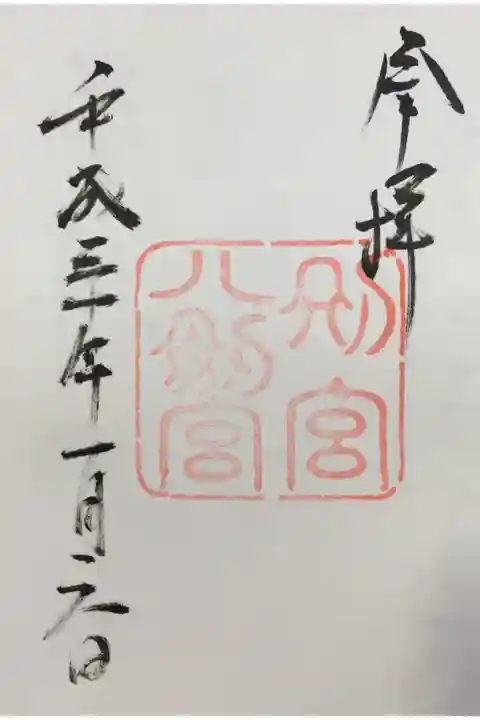 奉拝
別宮
八剣宮
平成三一年一月六日